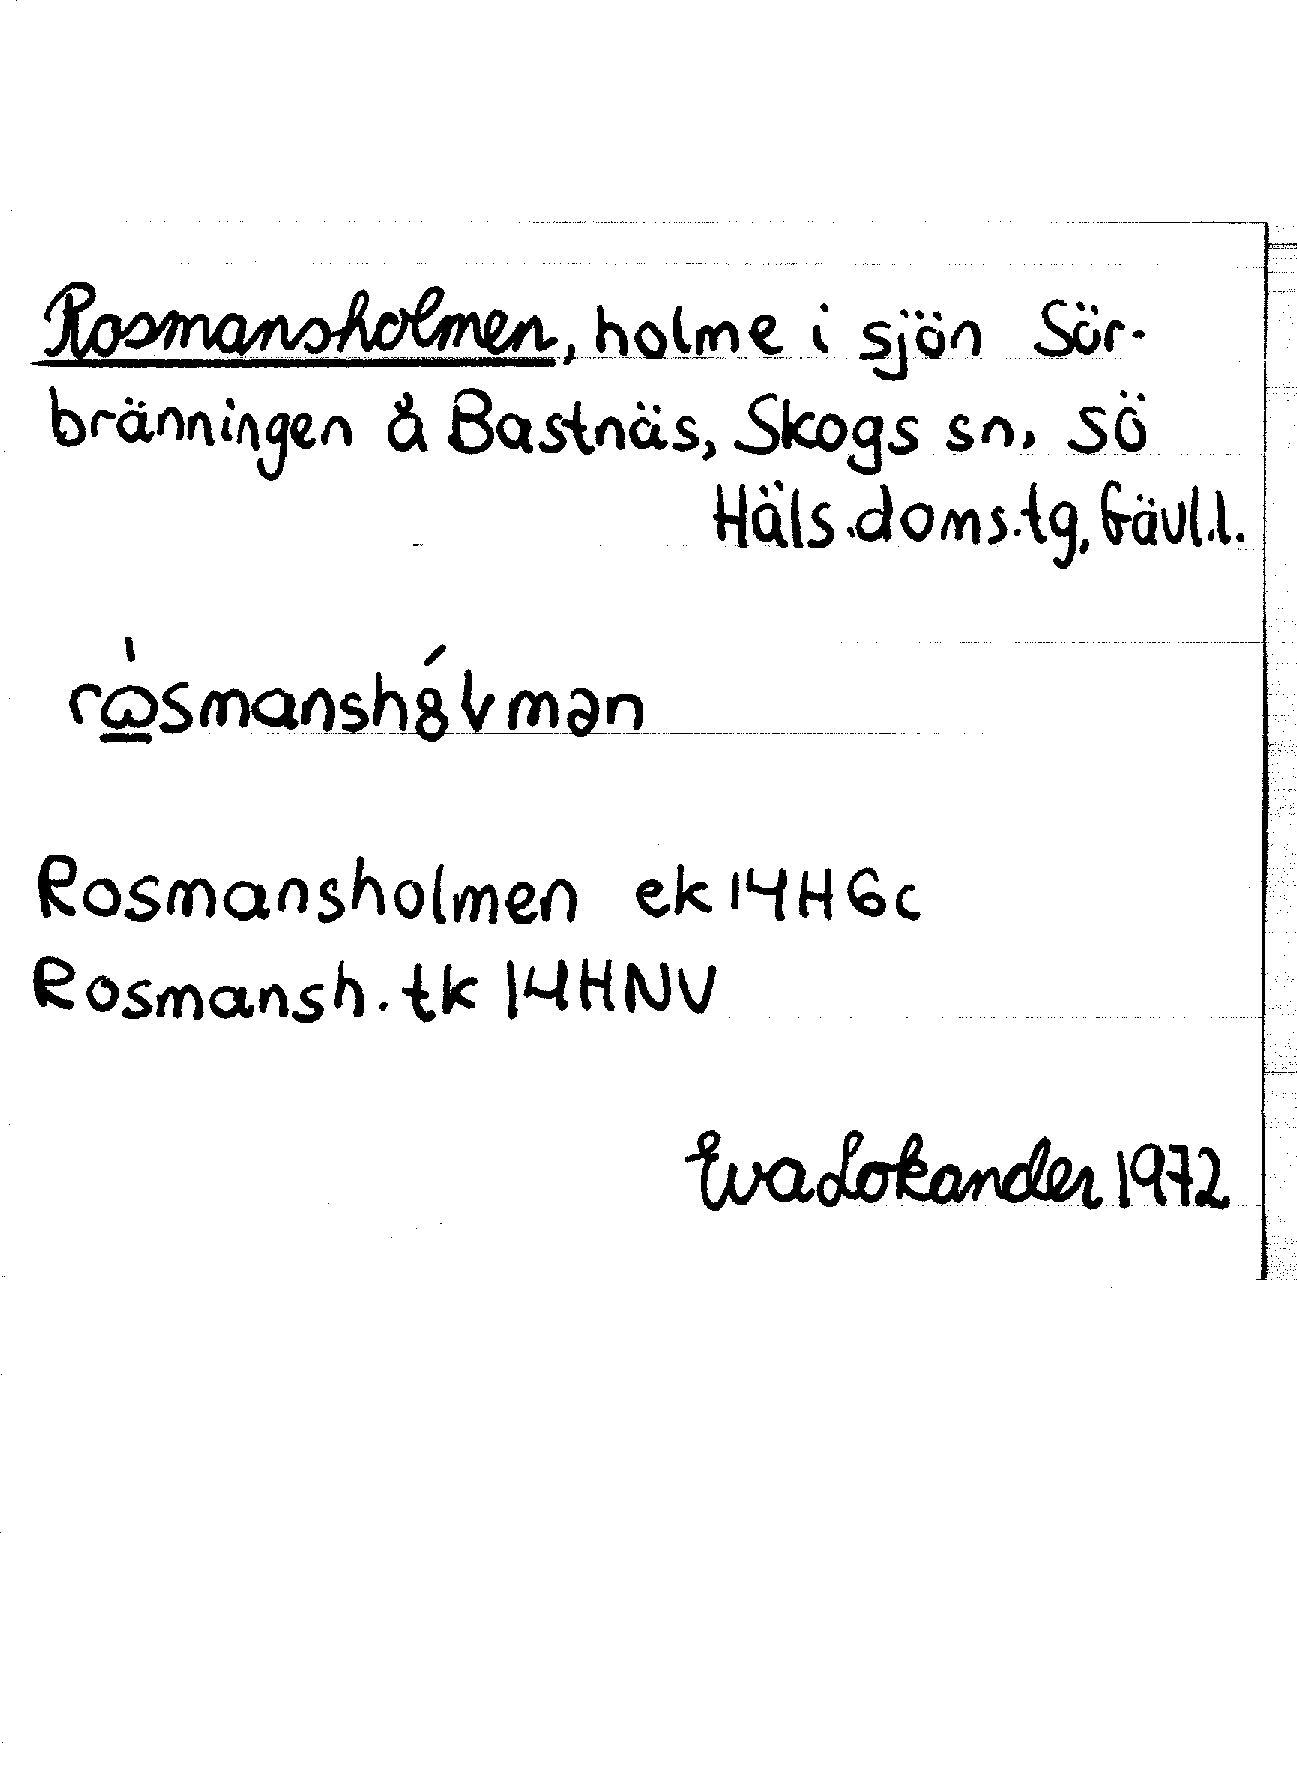 Rosmansholmen, holme i sjön Sör-
bränningen å Bastnäs, Skogs sn, SÖ
Häls.doms.tg, Gävl.l.
rὼ̲smanshȣ́ɭmən
Rosmansholmen ek 14H 6c
Rosmansh. tk 14HNV
Eva Lokander 1972